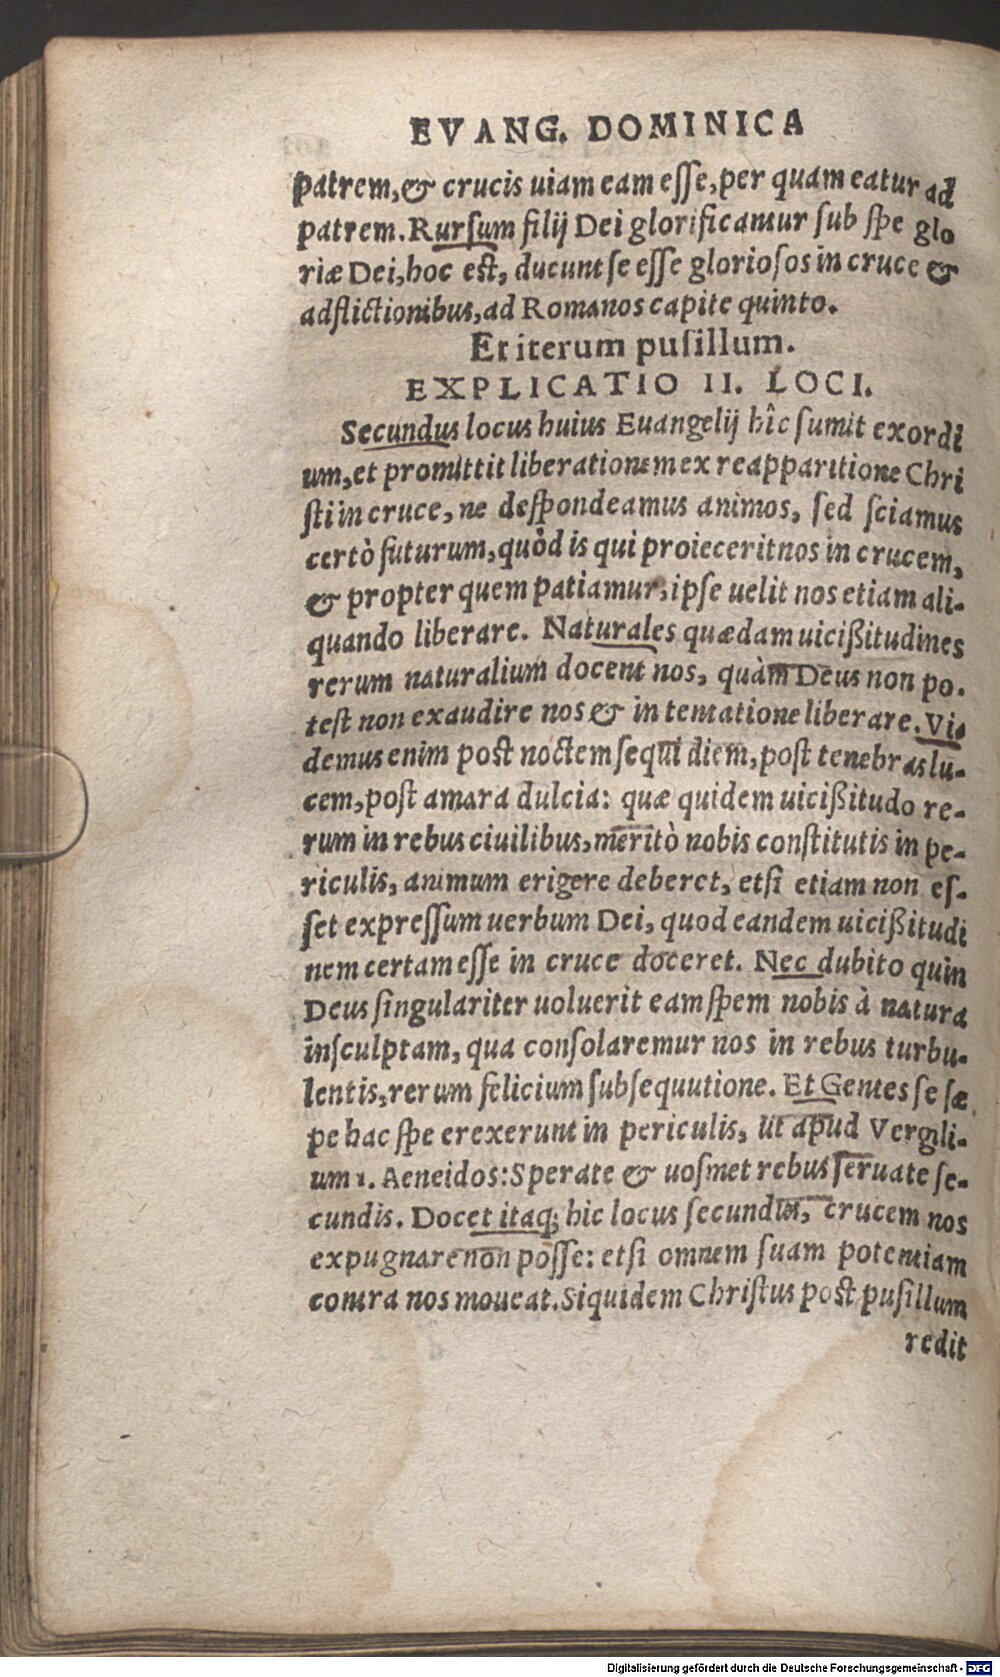 EVANG. DOMINICA
patrem, & crucis uiam eam esse, per quam eatur ad
patrem. Rursum filij Dei glorificantur sub spe glo
riæ Dei, hoc est, ducunt se esse gloriosos in cruce &
adflictionibus, ad Romanos capite quinto.
Et iterum pusillum.
EXPLICATIO II. LOCI.
Secundus locus huius Euangelij hîc sumit exordi
um, et promittit liberationem ex reapparitione Chri
sti in cruce, ne despondeamus animos, sed sciamus
certò futurum, quòd is qui proiecerit nos in crucem,
& propter quem patiamur, ipse uelit nos etiam ali-
quando liberare. Naturales quædam uicißitudines
rerum naturalium docent nos, quàm Deus non po-
test non exaudire nos & in tentatione liberare. Vi-
demus enim post noctem sequi diem, post tenebras lu-
cem, post amara dulcia: quæ quidem uicißitudo re-
rum in rebus ciuilibus, meritò nobis constitutis in pe-
riculis, animum erigere deberet, etsi etiam non es-
set expressum uerbum Dei, quod eandem uicißitudi
nem certam esse in cruce doceret. Nec dubito quin
Deus singulariter uoluerit eam spem nobis à natura
insculptam, qua consolaremur nos in rebus turbu-
lentis, rerum felicium subsequutione. Et Gentes se sæ
pe hac spe erexerunt in periculis, ut apud Vergili-
um 1. Aeneidos: Sperate & uosmet rebus seruate se-
cundis. Docet itaq; hic locus secundus, crucem nos
expugnare non posse: etsi omnem suam potentiam
contra nos moueat. Siquidem Christus post pusillum
redit
Digitalisierung gefördert durch die Deutsche Forschungsgemeinschaft - DFG